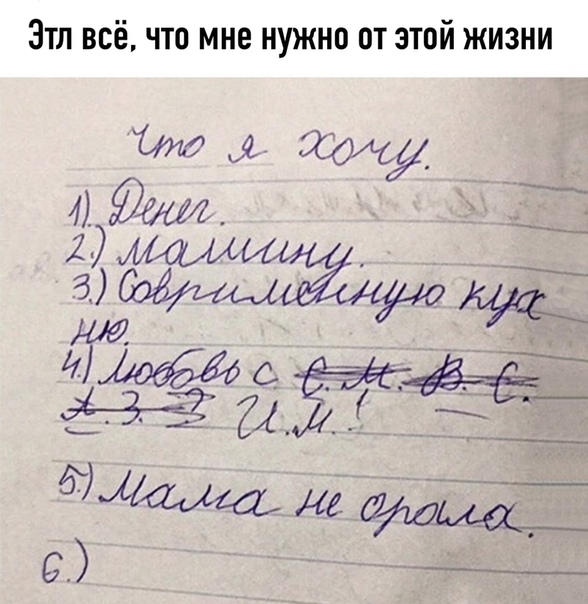 Этл всё, что мне нужно от этой жизни
Что я хочу.
1) Денег.
2.) машину.
3.) Совримен­ную кух
ню.
4.) Любовь с С. М. В. С.
А. З. И.М.!
5.) Мама не орала.
6.)